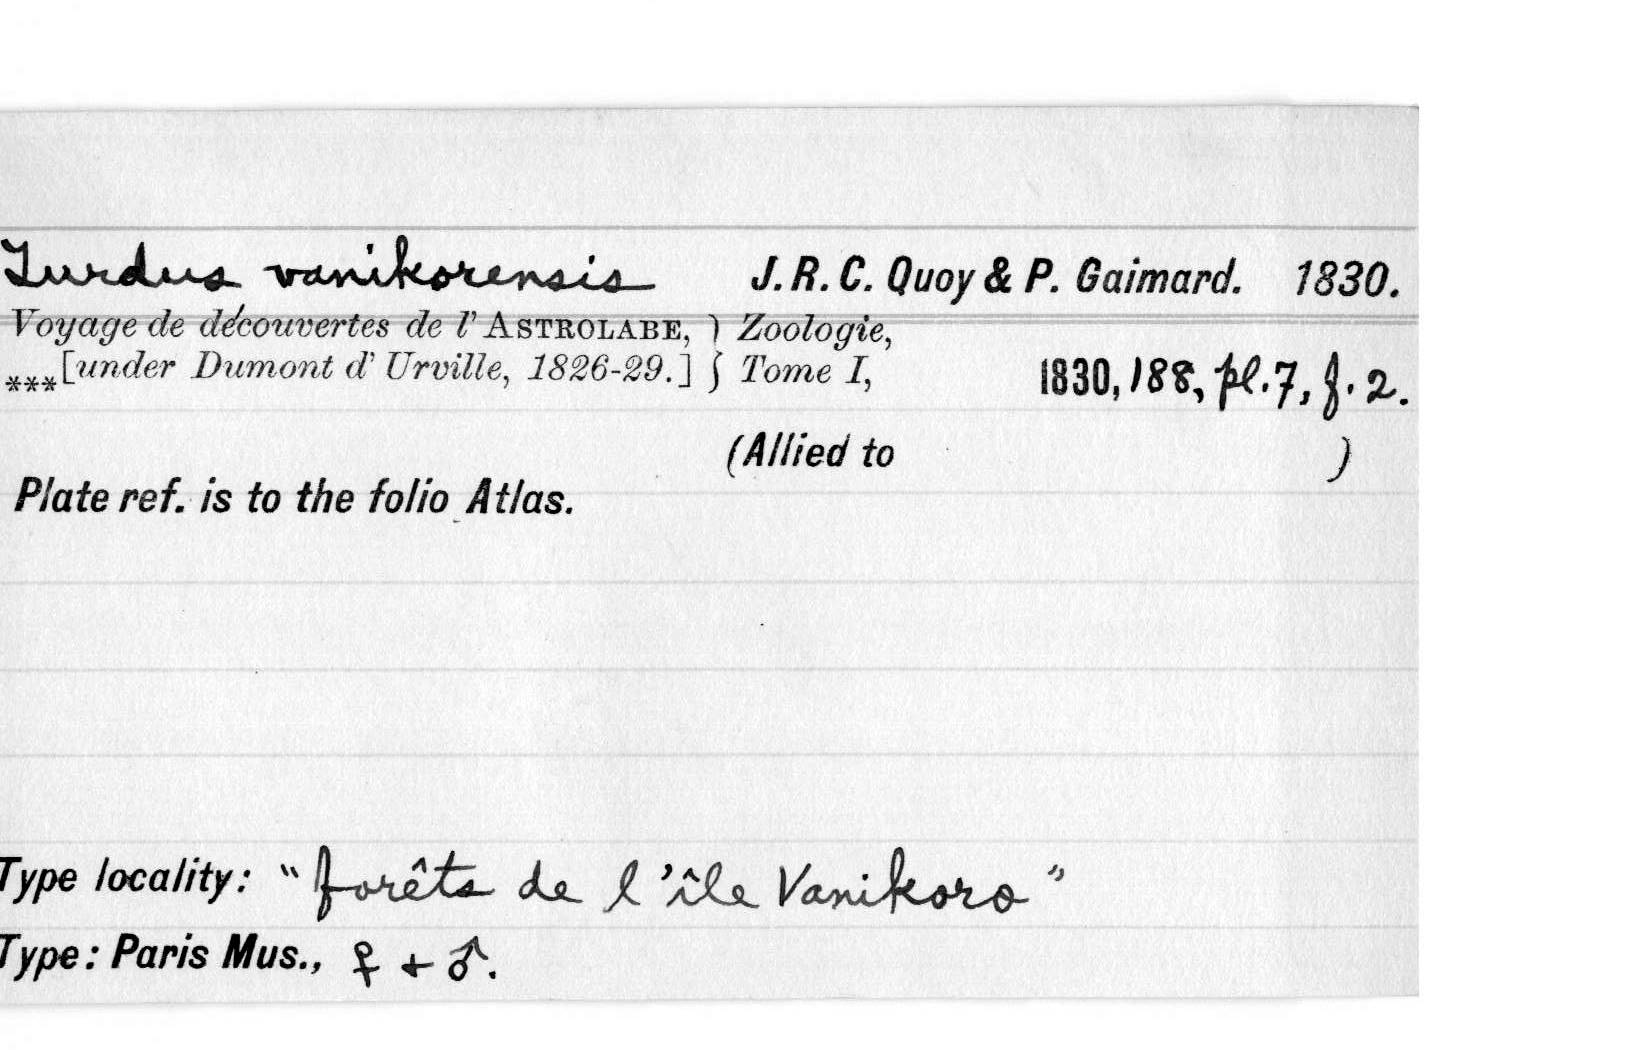 Turdus vanikorensis J. R. C. Quoy & P. Gaimard. 1830.
Voyage de découvertes de l' ASTROLABE, ) Zoologie,
***[under Dumont d' Urville, 1826-29.] } Tome I, 1830, 188, pl. 7, f. 2.
(Allied to )
Plate ref. is to the folio Atlas.
Type locality: "forêts de l'île Vanikoro"
Type: Paris Mus., ♀ + ♂.